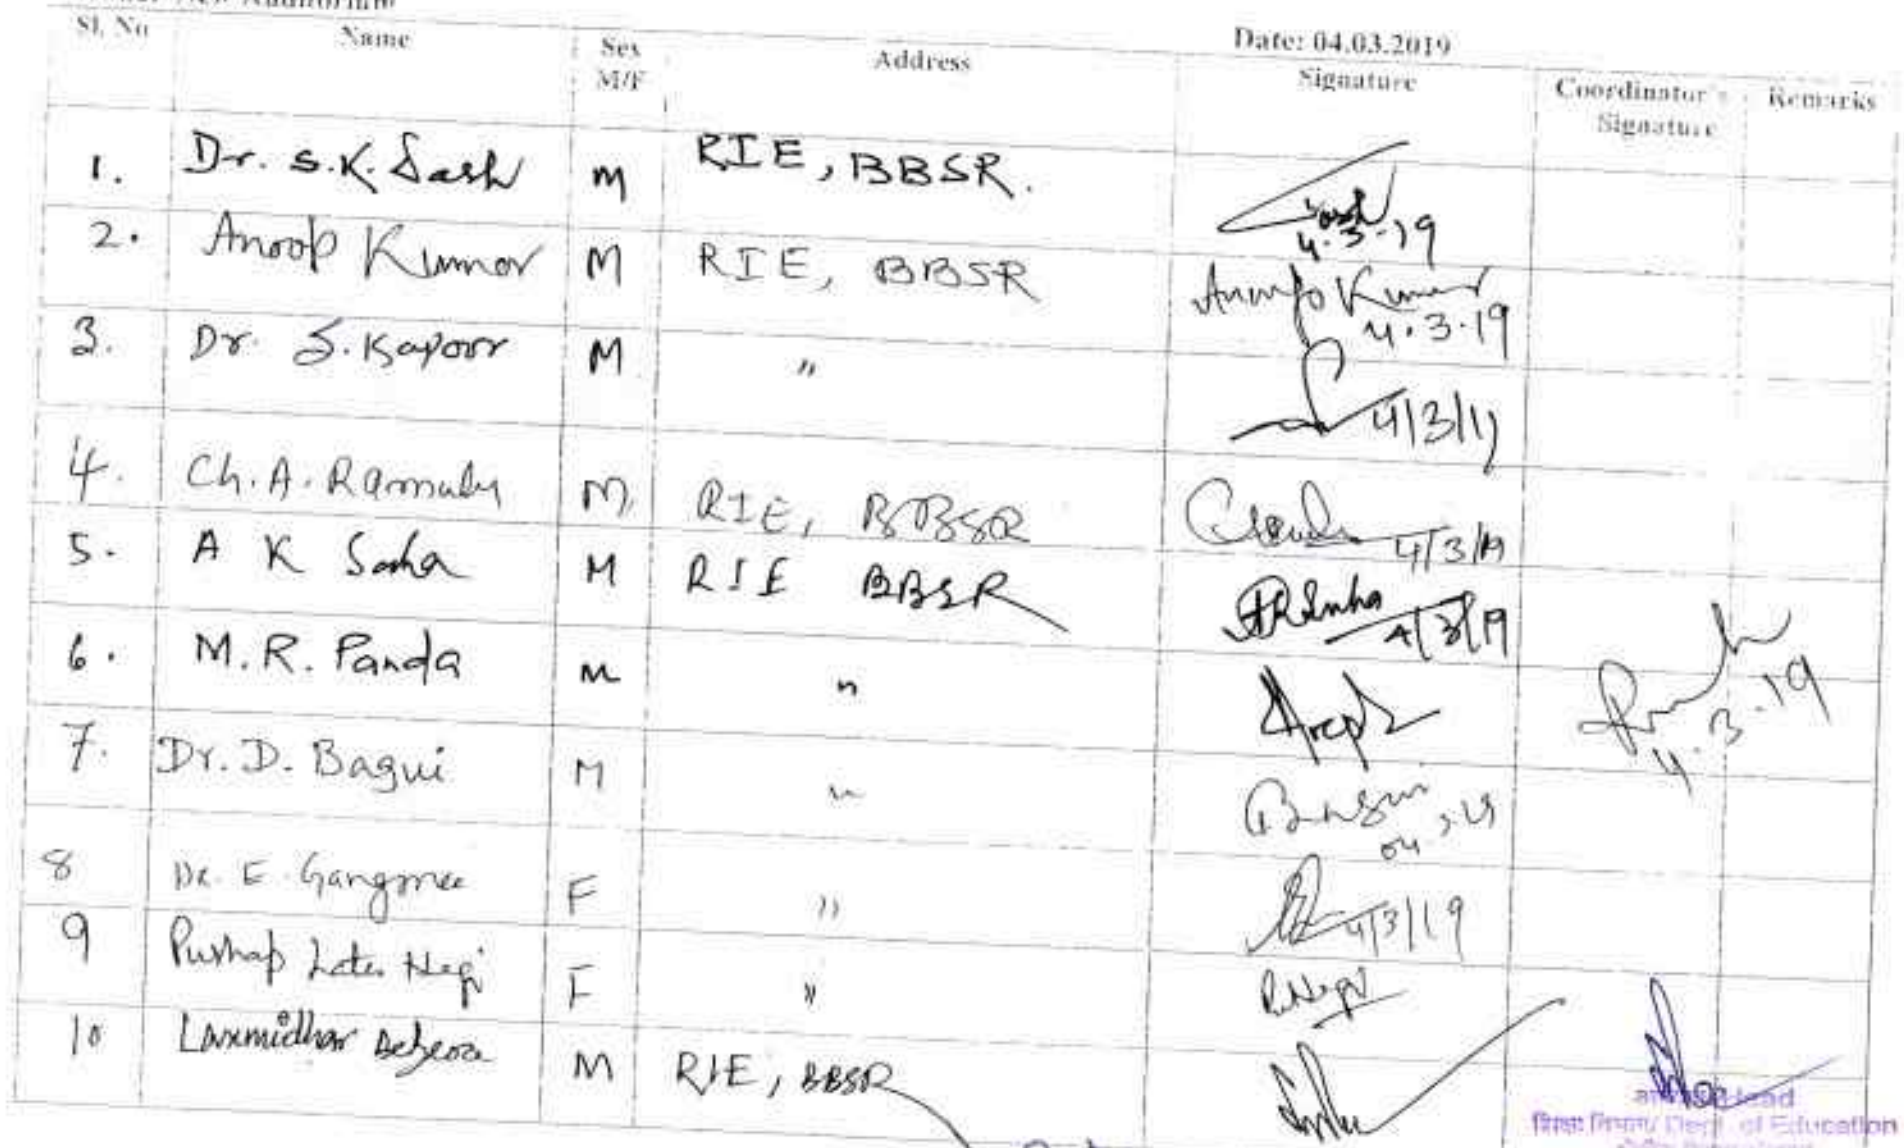 Auditorium
Date: 04.03.2019
Sl. No Name Sex M/F Address Signature Coordinator's Signature Remarks
1. Dr. S.K. Dash M RIE, BBSR. 4.3.19
2. Anoop Kumar M RIE, BBSR Anoop Kumar 4.3.19
3. Dr. S. Kapoor M " 4/3/19
4. Ch. A. Ramulu M RIE, BBSR 4/3/19
5. A K Saha M RIE BBSR 4/3/19
6. M. R. Panda M " 4.3.19
7. Dr. D. Bagui M "
8 Dr. E. Gangmei F " 4/3/19
9 Pushap Lata Negi F " P. Negi
10 Laxmidhar Behera M RIE, BBSR
Head
शिक्षा विभाग/ Dept. of Education